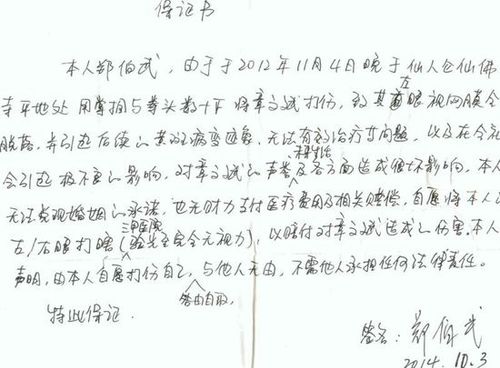 保证书
本人郑伯武，由于于2012年11月4日晚于仙人仑仙佛
寺平地处用掌掴与拳头数十下将章文斌打伤，致其左眼视网膜全
脱落，并引起后续的黄斑病变迹象，无法有效治疗等问题，以及在全社
会引起极不良的影响，对章文斌的声誉及各方面造成很坏影响。本人
无法兑现婚姻的承诺，也无财力支付医疗费用及相关赔偿，自愿将本人
左/右眼打瞎(三甲医院 完全无视力)，以赔付对章文斌造成的伤害。本人
声明，由本人自愿打伤自己，与他人无由，不需他人承担任何法律责任。
咎由自取。
特此保证.
签名：郑伯武
2014.10.3